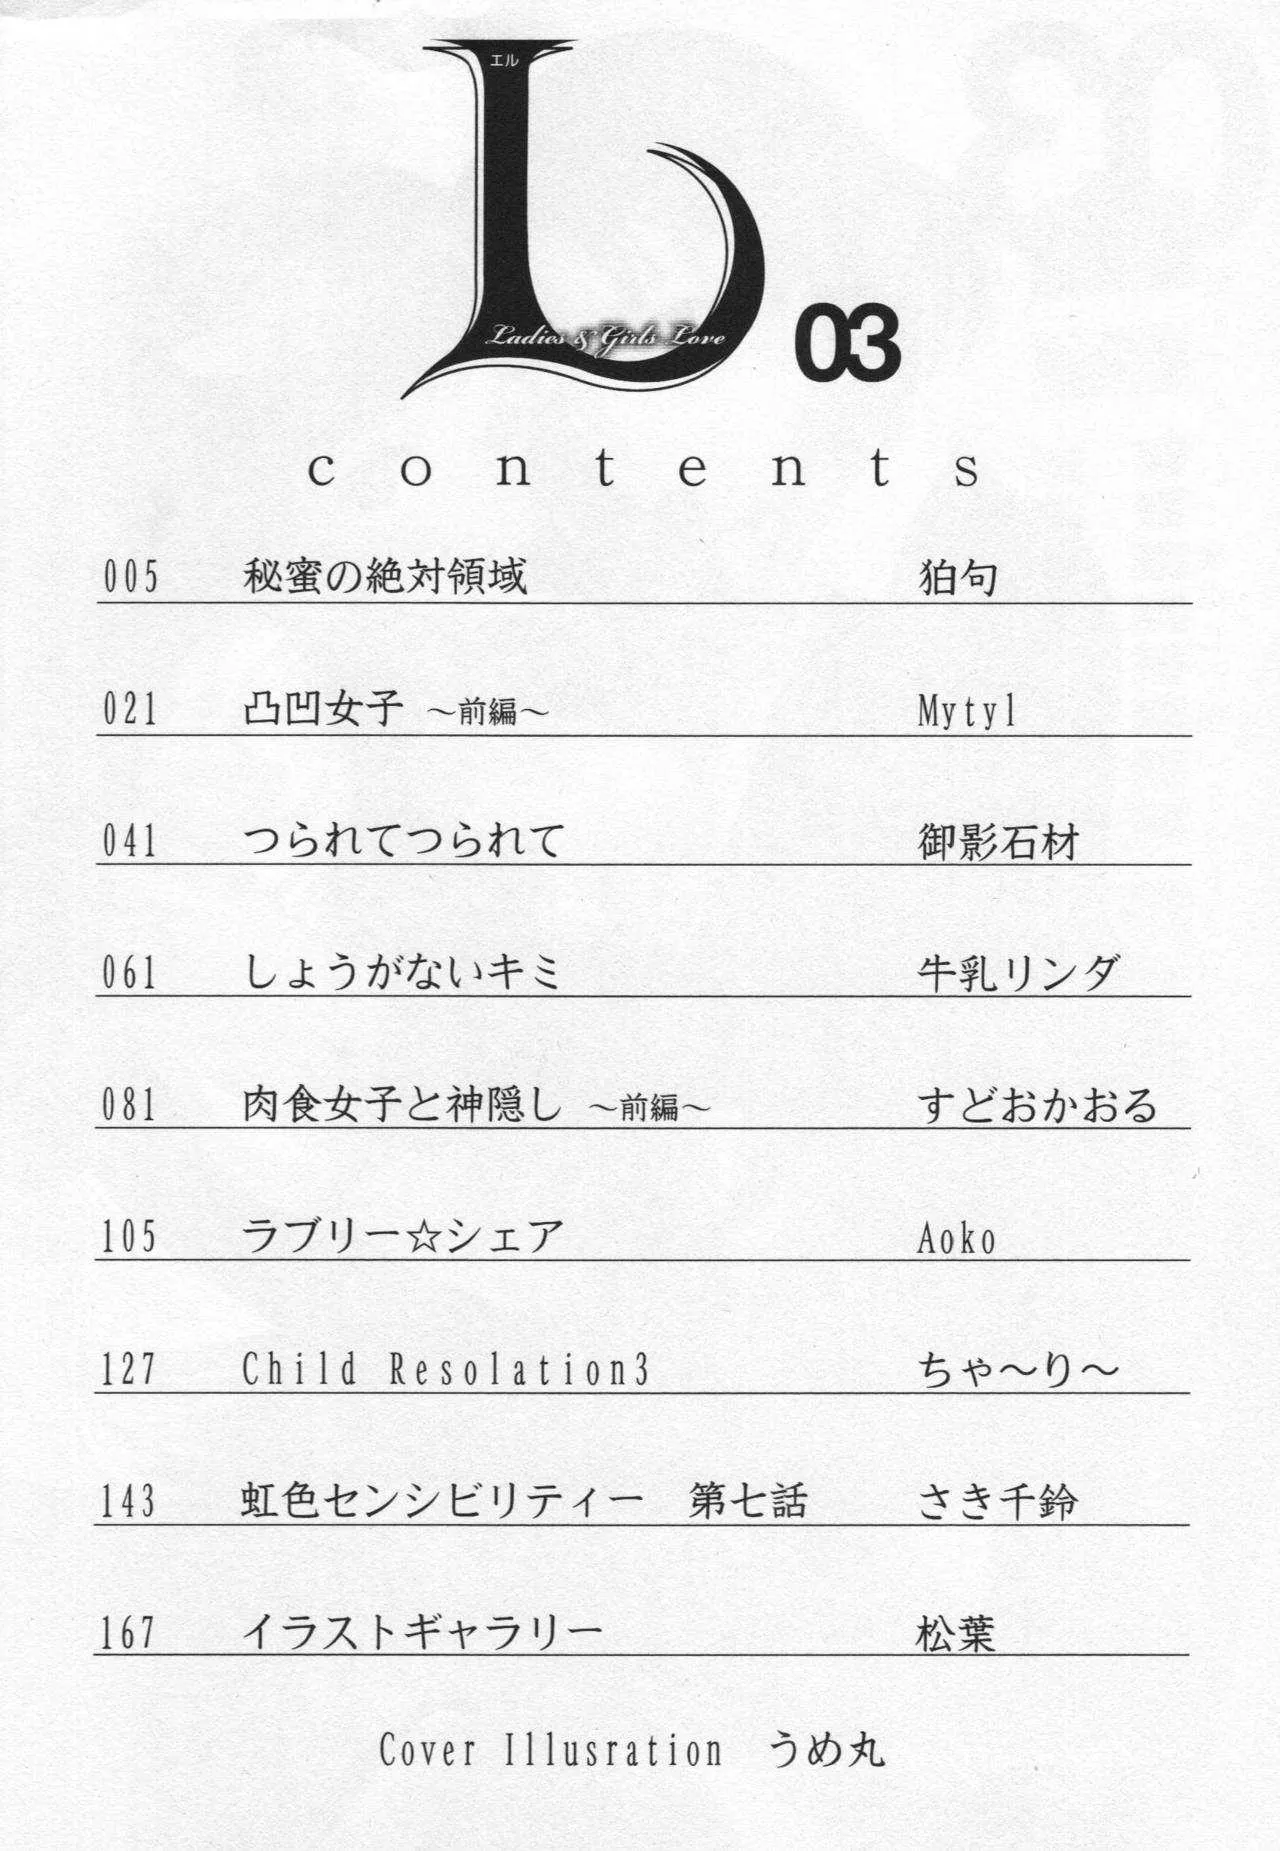 エル
L
Ladies & Girls Love
03
contents
005 秘蜜の絶対領域 狛句
021 凸凹女子 ～前編～ Mytyl
041 つられてつられて 御影石材
061 しょうがないキミ 牛乳リンダ
081 肉食女子と神隠し ～前編～ すどおかおる
105 ラブリー☆シェア Aoko
127 Child Resolation3 ちゃ～り～
143 虹色センシビリティー 第七話 さき千鈴
167 イラストギャラリー 松葉
Cover Illusration うめ丸